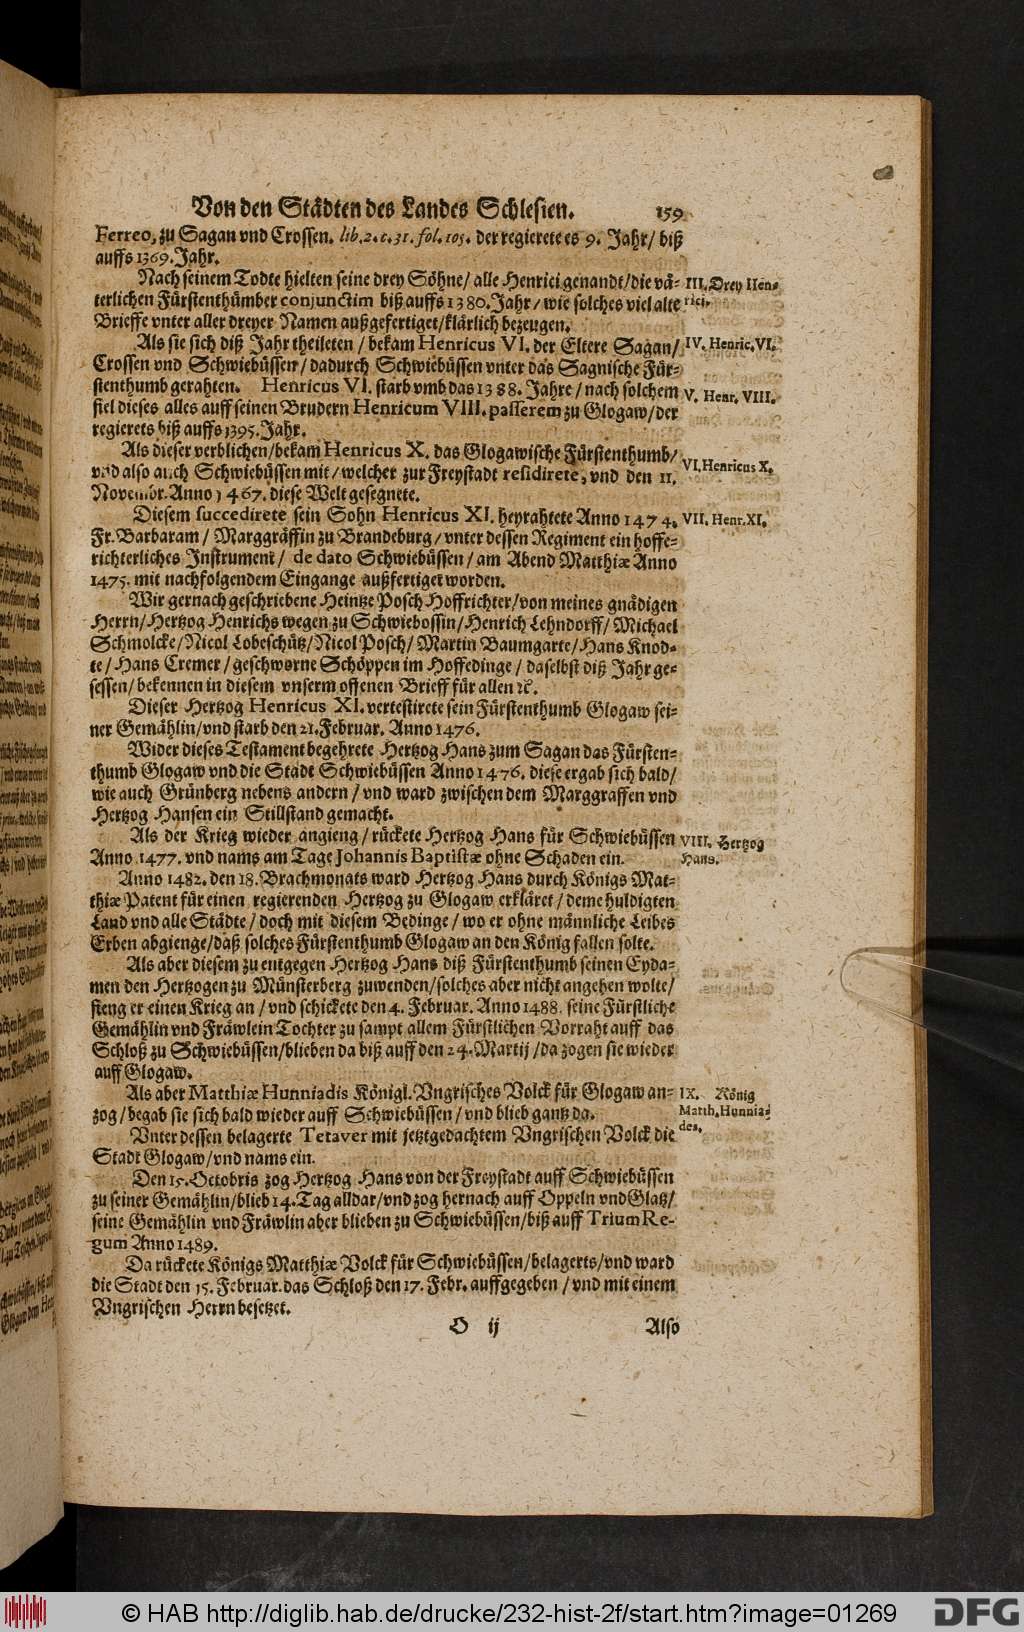 Von den Städten des Landes Schlesien. 159
Ferreo, zu Sagan vnd Crossen. lib. 2. c. 31. fol. 105. der regierete es 9. Jahr/ biß
auffs 1369. Jahr.
Nach seinem Todte hielten seine drey Söhne/ alle Henrici genandt/ die vä-
III. Drey Hen-
terlichen Fürstenthümber conjunctim biß auffs 1380. Jahr/ wie solches viel alte
rici.
Brieffe vnter aller dreyer Namen außgefertiget/ klärlich bezeugen.
Als sie sich diß Jahr theileten / bekam Henricus VI. der Eltere Sagan/
IV. Henric. VI.
Crossen vnd Schwiebüssen/ dadurch Schwiebüssen vnter das Sagnische Für-
stenthumb gerahten. Henricus VI. starb vmb das 1388. Jahre / nach solchem
V. Henr. VIII.
fiel dieses alles auff seinen Brudern Henricum VIII. passerem zu Glogaw/ der
regierets biß auffs 1395. Jahr.
Als dieser verblichen/ bekam Henricus X. das Glogawische Fürstenthumb/
VI. Henricus X.
vnd also auch Schwiebüssen mit/ welcher zur Freystadt residirete, vnd den 11.
Novembr. Anno 1467. diese Welt gesegnete.
Diesem succedirete sein Sohn Henricus XI. heyrahtete Anno 1474.
VII. Henr. XI.
Fr. Barbaram / Marggräffin zu Brandeburg/ vnter dessen Regiment ein hoffe-
richterliches Instrument/ de dato Schwiebüssen / am Abend Matthiæ Anno
1475. mit nachfolgendem Eingange außfertiget worden.
Wir gernach geschriebene Heintze Posch Hoffrichter/ von meines gnädigen
Herrn/ Hertzog Henrichs wegen zu Schwiebossin/ Henrich Lehndorff/ Michael
Schmolcke/ Nicol Lobeschütz/ Nicol Posch/ Martin Baumgarte/ Hans Knod-
te/ Hans Cremer / geschworne Schöppen im Hoffedinge / daselbst diß Jahr ge-
sessen/ bekennen in diesem vnserm offenen Brieff für allen ꝛc.
Dieser Hertzog Henricus XI. vertestirete sein Fürstenthumb Glogaw sei-
ner Gemählin/ vnd starb den 21. Februar. Anno 1476.
Wider dieses Testament begehrete Hertzog Hans zum Sagan das Fürsten-
thumb Glogaw vnd die Stadt Schwiebüssen Anno 1476. diese ergab sich bald/
wie auch Grünberg nebens andern / vnd ward zwischen dem Marggraffen vnd
Hertzog Hansen ein Stillstand gemacht.
Als der Krieg wieder angieng / rückete Hertzog Hans für Schwiebüssen
VIII. Hertzog
Anno 1477. vnd nams am Tage Johannis Baptistæ ohne Schaden ein.
Hans.
Anno 1482. den 18. Brachmonats ward Hertzog Hans durch Königs Mat-
thiæ Patent für einen regierenden Hertzog zu Glogaw erkläret / deme huldigten
Land vnd alle Städte / doch mit diesem Bedinge / wo er ohne männliche Leibes
Erben abgienge/ daß solches Fürstenthumb Glogaw an den König fallen solte.
Als aber diesem zu entgegen Hertzog Hans diß Fürstenthumb seinen Eyda-
men den Hertzogen zu Münsterberg zuwenden/ solches aber nicht angehen wolte/
fieng er einen Krieg an / vnd schickete den 4. Februar. Anno 1488. seine Fürstliche
Gemählin vnd Fräwlein Tochter zu sampt allem Fürstlichen Vorraht auff das
Schloß zu Schwiebüssen/ blieben da biß auff den 24. Martij / da zogen sie wieder
auff Glogaw.
Als aber Matthiæ Hunniadis Königl. Vngrisches Volck für Glogaw an-
IX. König
zog / begab sie sich bald wieder auff Schwiebüssen / vnd blieb gantz da.
Matth. Hunnia-
Vnter dessen belagerte Tetaver mit jetztgedachtem Vngrischen Volck die
des.
Stadt Glogaw/ vnd nams ein.
Den 15. Octobris zog Hertzog Hans von der Freystadt auff Schwiebüssen
zu seiner Gemählin/ blieb 14. Tag alldar/ vnd zog hernach auff Oppeln vnd Glatz/
seine Gemählin vnd Fräwlin aber blieben zu Schwiebüssen/ biß auff Trium Re-
gum Anno 1489.
Da rückete Königs Matthiæ Volck für Schwiebüssen/ belagerts/ vnd ward
die Stadt den 15. Februar. das Schloß den 17. Febr. auffgegeben / vnd mit einem
Vngrischen Herrn besetzet.
O ij Also
© HAB http://diglib.hab.de/drucke/232-hist-2f/start.htm?image=01269
DFG